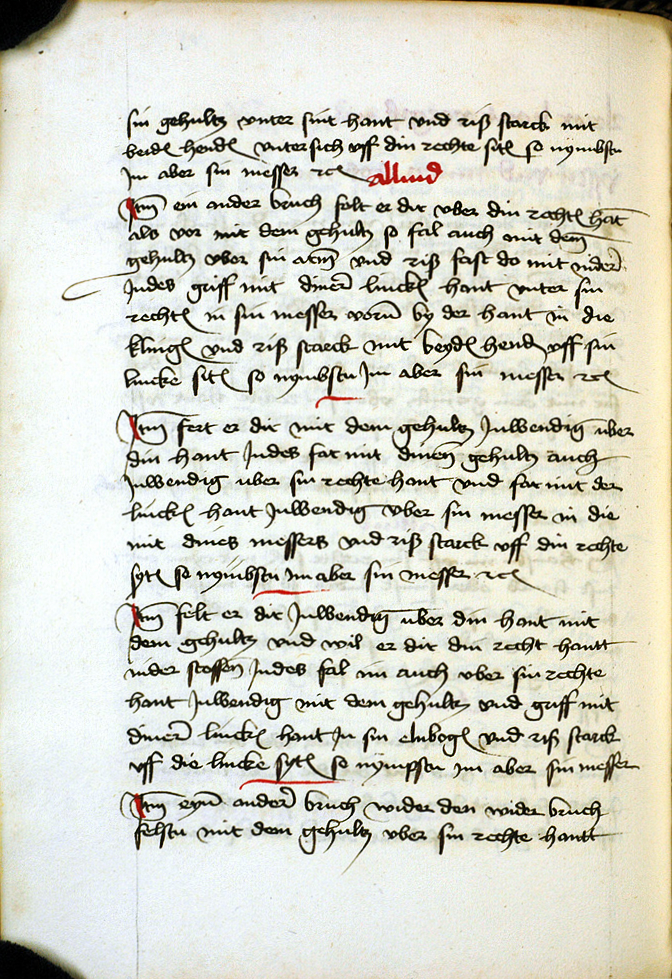 sin gehultz vnter sint hant vnd riß starck mit
beid hend vntersich vff din rechte sit so nymbstu
Im aber sin messer rc
alliud
Itm ein ander bruch felt er dir vber din recht hāt
als vor mit dem gehultz so fal auch mit dem
gehultz vber sin arm vnd riß fast do mit nider
Indes griff mit diner linck hant vnter sin
recht in sin messer vorn by der hant in die
kling vnd riß starck mit beyd hend vff sin
lincke sit so nymbstu Im aber sin messer rc
Itm fert er dir mit dem gehultz Inwendig vber
din hant Indes far mit dinen gehultz auch
Inwendig vber sin rechte hant vnd far mit der
linck hant Inwendig vber sin messer in die
mit dines messers vnd riß starck vff din rechte
syt so nymbstu im aber sin messer rc
Itm felt er dir Inwendig vber din hant mit
dem gehultz vnd wil er dir din recht hantt
nider stossen Indes fal im auch vber sin rechte
hant Inwendig mit dem gehultz vnd griff mit
diner linck hant In sin elnbog vnd riß starck
vff die lincke syt so nympstu im aber sin messer
Itm eyn ander bruch wider den wider bruch
felstu mit dem gehultz vber sin rechte hantt